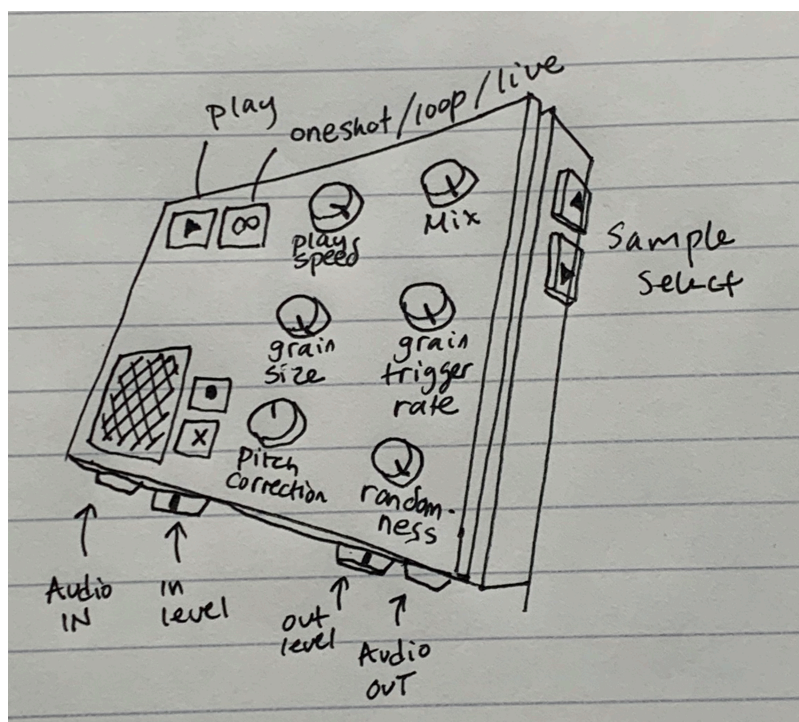 play
oneshot/loop/live
∞
play
speed
Mix
Sample
Select
grain
size
grain
trigger
rate
x
Pitch
Correction
random-
ness
Audio
IN
in
level
out
level
Audio
OUT